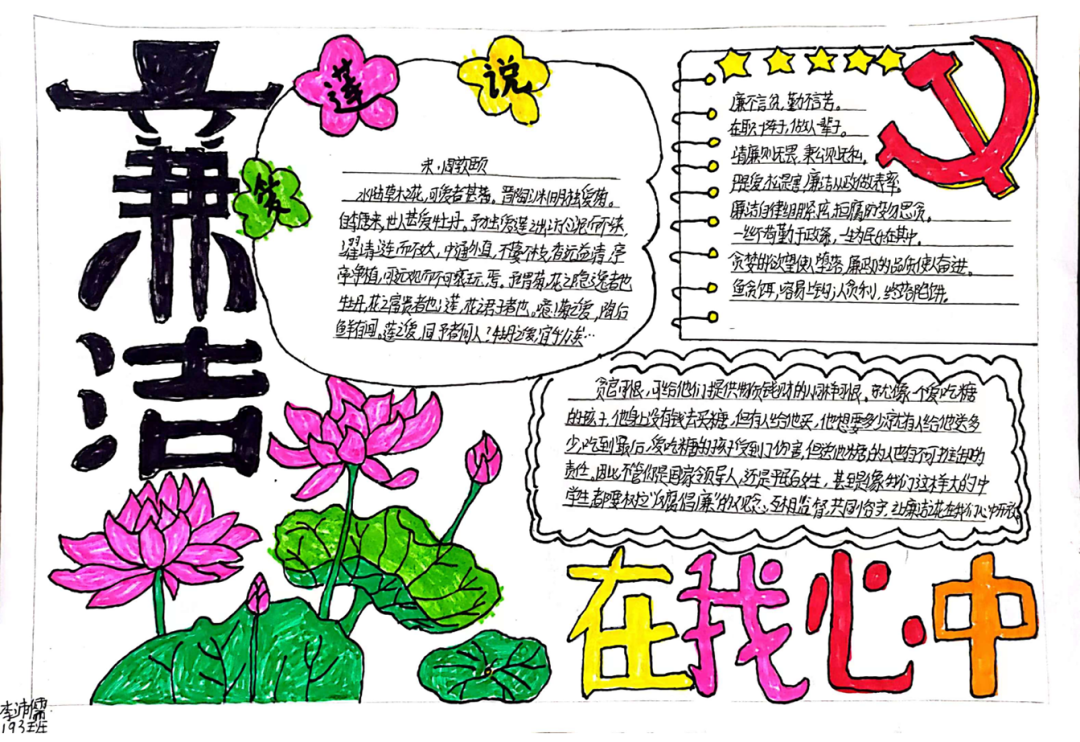 廉洁
爱莲说
宋·周敦颐
水陆草木之花,可爱者甚蕃。晋陶渊明独爱菊。
自李唐来,世人甚爱牡丹。予独爱莲之出淤泥而不染,
濯清涟而不妖,中通外直,不蔓不枝,香远益清,亭
亭净植,可远观而不可亵玩焉。予谓菊,花之隐逸者也
牡丹,花之富贵者也;莲,花之君子者也。噫!菊之爱,陶后
鲜有闻。莲之爱,同予者何人?牡丹之爱,宜乎众矣…
廉不言贫,勤不言苦。
在职一阵子,做人一辈子。
清廉则无畏,秉公则无私。
廉洁从政做表率。
廉洁自律 拒腐防变勿思贪。
勤于政务,一生为民
贪婪的欲望使人堕落,廉政的品质使人奋进。
鱼贪饵,容易上钩;人贪利,终究陷阱。
贪官可恨,可给他们提供物质钱财的人同样可恨。就像一个爱吃糖
的孩子,他身上没有钱去买糖,但有人给他买,他想要多少就有人给他买多
少,吃到最后,爱吃糖的孩子受到了伤害,但给他糖的人也有不可推卸的
责任。因此,不管你是国家领导人,还是平民百姓,甚至是像我们这样大的中
学生,都要树立“反腐倡廉”的观念,互相监督,共同 让廉洁之花在我们心中
在我心中
193班